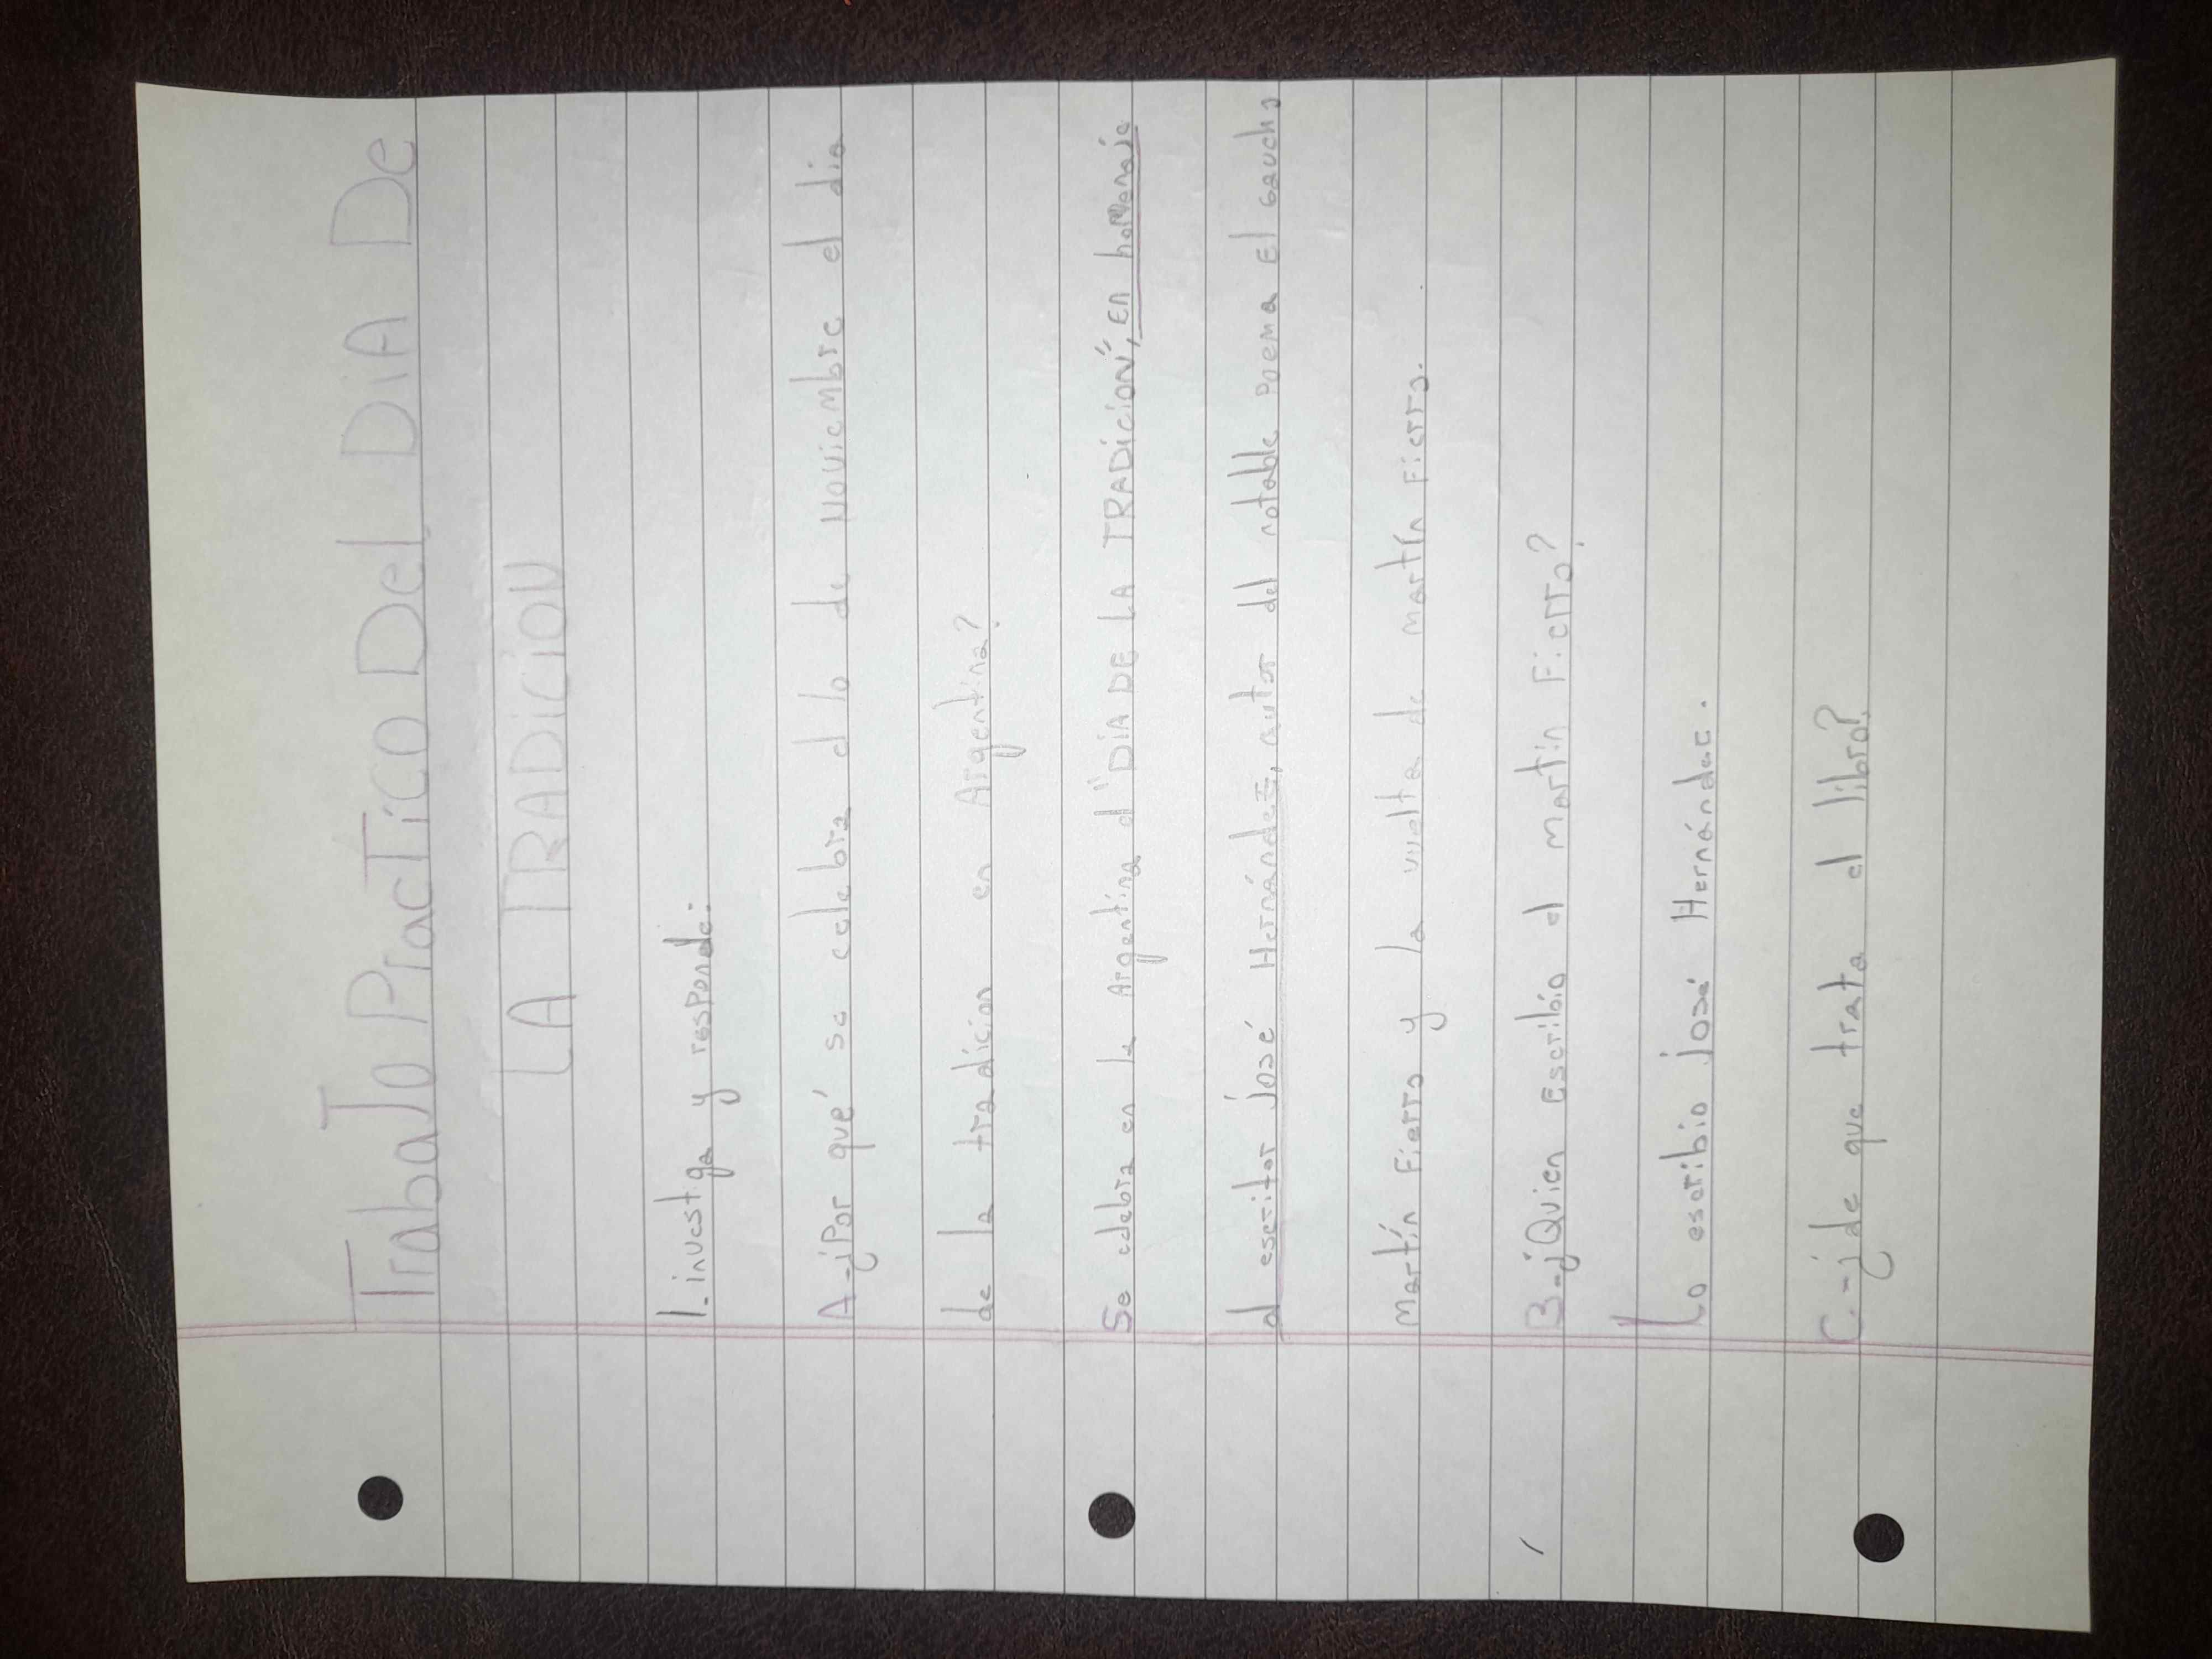 TrabaJo PracTico Del DiA De
LA TRADiCiON
1_investiga y responde:
A-¿Por qué se celebra el 10 de Noviembre el dia
de la tradicion en Argentina?
Se celebra en la Argentina el "DiA DE LA TRADiCiON", En homenaje
al escritor josé Hernández, autor del notable poema El Gaucho
Martín Fierro y la vuelta de martín Fierro.
B-¿Quien Escribio el martin Fierro?
Lo escribio josé Hernández.
C-¿de que trata el libro?